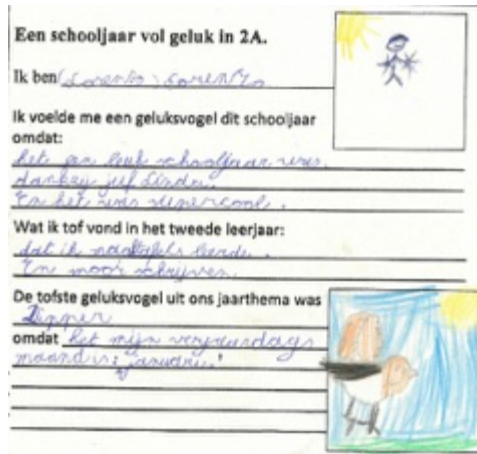 Een schooljaar vol geluk in 2A.
Ik ben Lorenzo Lorenzo
Ik voelde me een geluksvogel dit schooljaar
omdat:
het een leuk schooljaar was.
dankzij juf Linda.
En het was supercool.
Wat ik tof vond in het tweede leerjaar:
dat ik leerde.
En moor schrijven
De tofste geluksvogel uit ons jaarthema was
omdat het mijn verjaardags
maand is: januari!